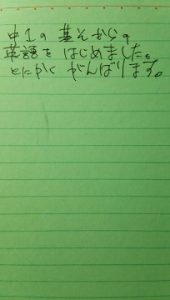 中1の基そからの
英語をはじめました。
とにかくがんばります。